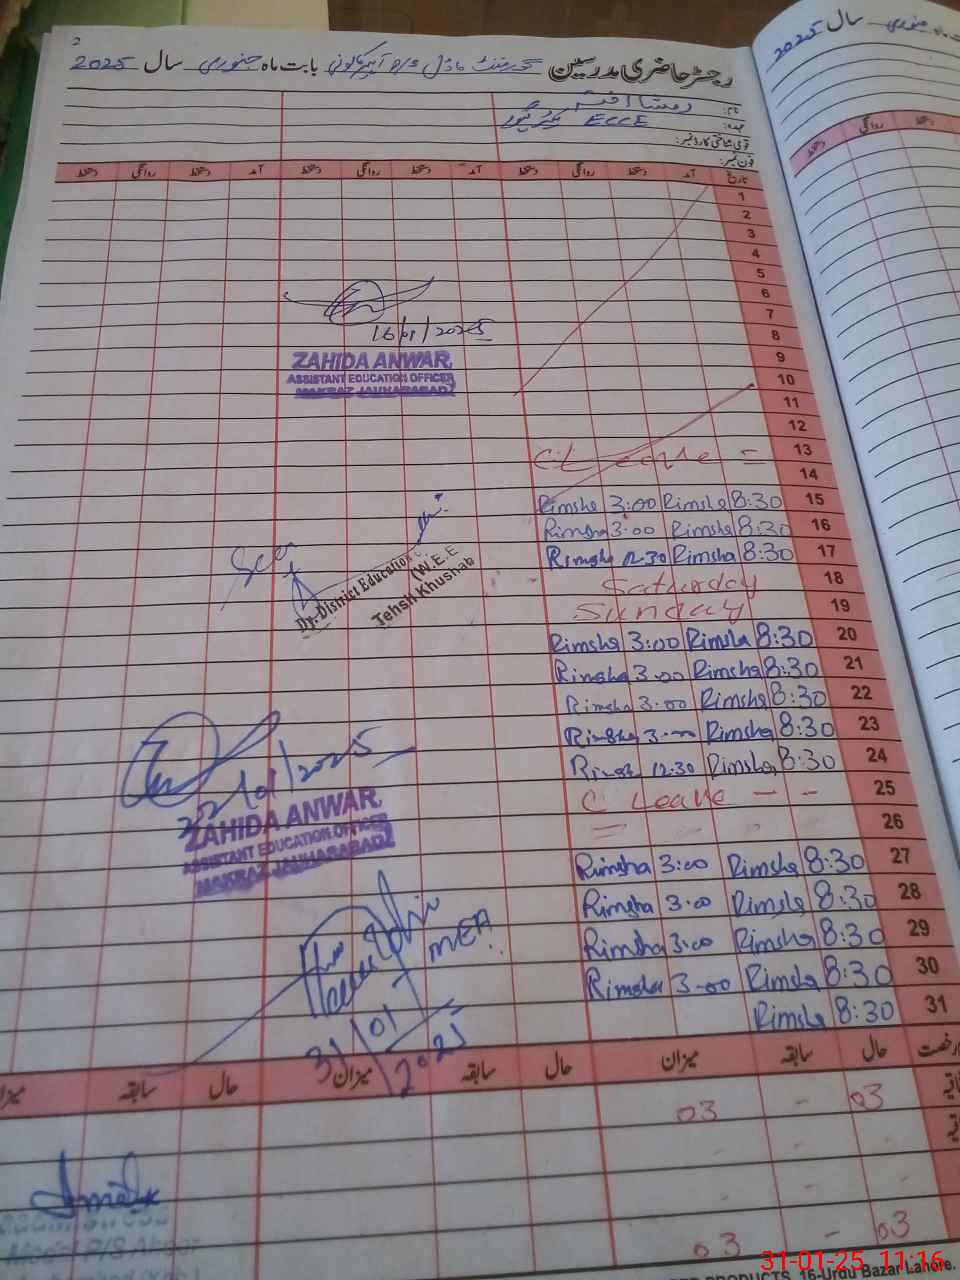 2
رجسٹر حاضری مدرسین گورنمنٹ ماڈل P/S امیر کالونی بابت ماہ جنوری سال 2025
نام: رمشا
عہدہ: ECCE کیئر گیور
قومی شناختی کارڈ نمبر:
فون نمبر:
تاریخ آمد دستخط روانگی دستخط آمد دستخط روانگی دستخط آمد دستخط روانگی دستخط
1
2
3
4
5
6
7
8
9
10
11
12
13 leave =
14
15 8:30 Rimsha 3:00 Rimsha
16 8:30 Rimsha 3:00 Rimsha
17 8:30 Rimsha 12:30 Rimsha
18 Saturday
19 Sunday
20 8:30 Rimsha 3:00 Rimsha
21 8:30 Rimsha 3:00 Rimsha
22 8:30 Rimsha 3:00 Rimsha
23 8:30 Rimsha 3:00 Rimsha
24 8:30 Rimsha 12:30 Rimsha
25 C Leave - -
26 =
27 8:30 Rimsha 3:00 Rimsha
28 8:30 Rimsha 3:00 Rimsha
29 8:30 Rimsha 3:00 Rimsha
30 8:30 Rimsha 3:00 Rimsha
31 8:30 Rimsha
16/01/2025
ZAHIDA ANWAR
ASSISTANT EDUCATION OFFICER
MARKAZ JAUHARABAD
Seen
Dy. District Education
(W.E.E
Tehsil Khushab
22/01/2025
ZAHIDA ANWAR
ASSISTANT EDUCATION OFFICER
MARKAZ JAUHARABAD
MEA
31/01/2025
رخصت حال سابقہ میزان حال سابقہ میزان حال سابقہ میزان
03 - 03
03 - 03
Model P/S
سال 2025
دستخط روانگی دستخط
PRODUCTS, 16-Urdu Bazar Lahore.
31-01-25 11:16